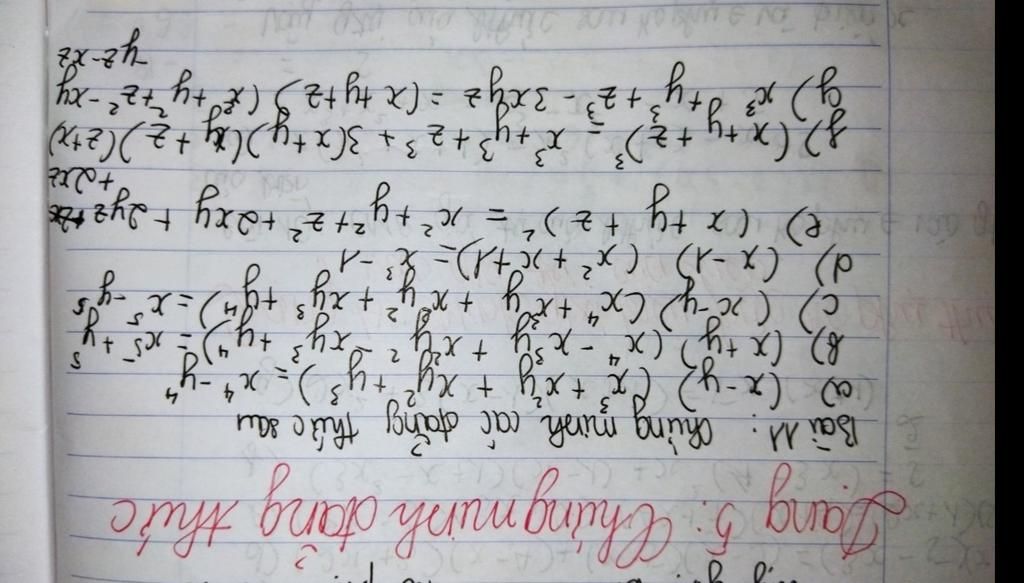 Dạng 5: Chứng minh đẳng thức
Bài 11: Chứng minh các đẳng thức sau
a) (x-y) (x³+x²y+xy²+y³)=x⁴-y⁴
b) (x+y) (x⁴-x³y+x²y²-xy³+y⁴)=x⁵+y⁵
c) (x-y) (x⁴+x³y+x²y²+xy³+y⁴)=x⁵-y⁵
d) (x-1) (x²+x+1)=x³-1
e) (x+y+z)²=x²+y²+z²+2xy+2yz
+2xz
f) (x+y+z)³=x³+y³+z³+3(x+y)(y+z)(z+x)
g) x³+y³+z³-3xyz=(x+y+z)(x²+y²+z²-xy
-yz-xz